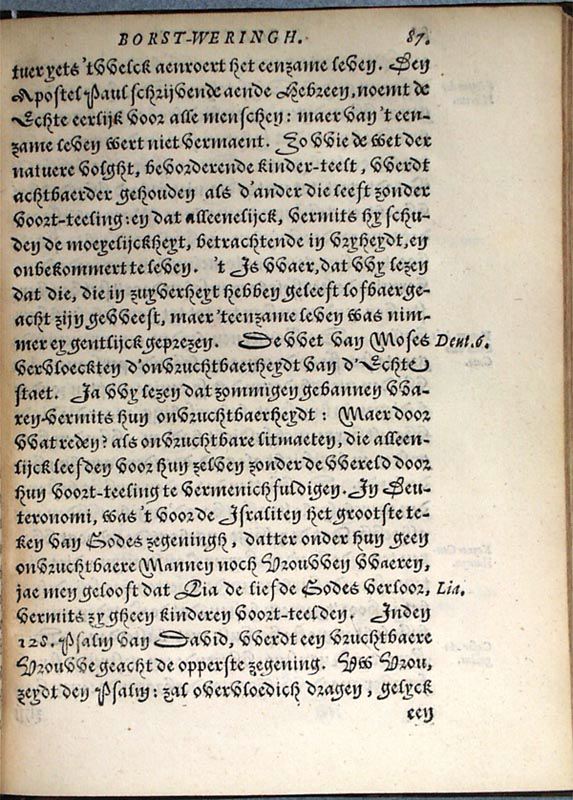 BORST-WERINGH. 87.
tuer yets 't vvelck aenroert het eenzame leven. Den
Apostel Paul schrijvende aende Hebreen, noemt de
Echte eerlijk voor alle menschen: maer van 't een-
zame leven wert niet vermaent. Zo vvie de wet der
natuere volght, bevorderende kinder-teelt, vverdt
achtbaerder gehouden als d'ander die leeft zonder
voort-teeling: en dat alleenelijck, vermits hy schu-
den de moeyelijckheyt, betrachtende in vryheydt, en
onbekommert te leven. 't Is vvaer, dat vvy lezen
dat die, die in zuyverheyt hebben geleeft lofbaer ge-
acht zijn gevveest, maer 't eenzame leven was nim-
mer eygentlijck geprezen. De vvet van Moses Deut. 6.
vervloeckten d'onvruchtbaerheydt van d'Echte
staet. Ja vvy lezen dat zommigen gebannen vva-
ren vermits hun onvruchtbaerheydt: Maer door
vvat reden? als onvruchtbare litmaeten, die alleen-
lijck leefden voor hun zelven zonder de vvereld door
hun voort-teeling te vermenichfuldigen. In Deu-
teronomi, was 't voor de Israliten het grootste te-
ken van Godes zegeningh, datter onder hun geen
onvruchtbaere Mannen noch Vrouvven vvaeren,
jae men gelooft dat Lia de liefde Godes verloor, Lia.
vermits zy gheen kinderen voort-teelden. Inden
128. Psalm van David, vverdt een vruchtbaere
Vrouvve geacht de opperste zegening. Vw Vrou,
zeydt den Psalm: zal overvloedich dragen, gelyck
een